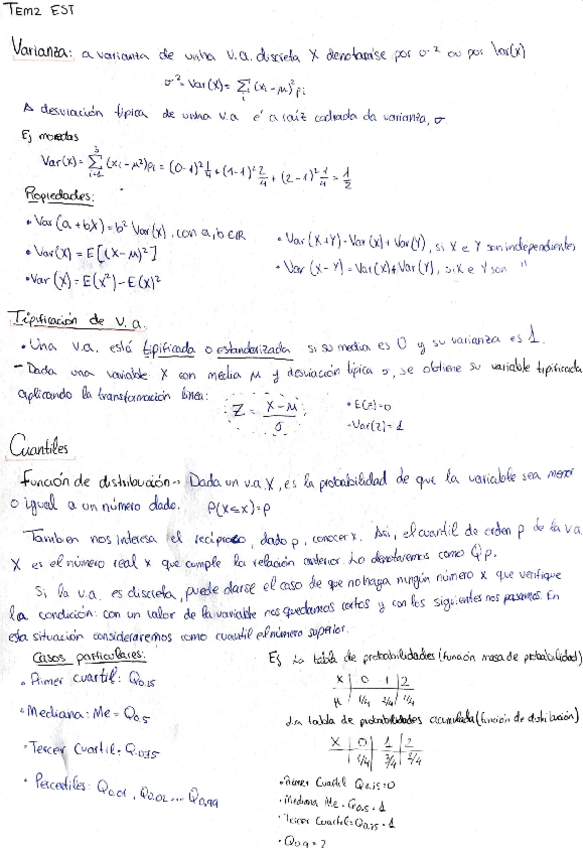 TEMA 2 EST
Varianza: a varianza de unha v.a. discreta X denotarase por σ² ou por Var(X)
σ² = Var(X) = Σᵢ (xᵢ - μ)² pᵢ
A desviación típica de unha v.a é a raíz cadrada da varianza, σ
Ej monedas
Var(X) = Σᵢ₌₁³ (xᵢ - μ²) pᵢ = (0-1)² 1/4 + (1-1)² 2/4 + (2-1)² 1/4 = 1/2
Propiedades:
• Var(a+bX) = b² Var(X), con a,b ∈ R
• Var(X) = E[(X-μ)²]
• Var(X) = E(X²) - E(X)²
• Var(X+Y) = Var(X) + Var(Y), si X e Y son independientes
• Var(X-Y) = Var(X) + Var(Y), si X e Y son "
Tipificación de v.a.
• Una v.a. está tipificada o estandarizada si su media es 0 y su varianza es 1.
- Dada una variable X con media μ y desviación típica σ, se obtiene su variable tipificada
aplicando la transformación lineal:
Z = (X-μ)/σ
• E(Z)=0
- Var(Z)=1
Cuantiles
Función de distribución → Dada un v.a X, es la probabilidad de que la variable sea menor
o igual a un número dado. P(X≤x)=p
Tambien nos interesa el recíproco, dado p, conocer x. Así, el cuantil de orden p de la v.a
X es el número real x que cumple la relación anterior. Lo denotaremos como Qp.
Si la v.a. es discreta, puede darse el caso de que no haya ningún número x que verifique
la condición: con un valor de la variable nos quedamos cortos y con los siguientes nos pasamos. En
esta situación consideraremos como cuantil el número superior.
Casos particulares:
• Primer cuartil: Q0.25
• Mediana: Me = Q0.5
• Tercer Cuartil = Q0.75
• Percentiles: Q0.01, Q0.02 ... Q0.99
Ej La tabla de probabilidades (función masa de probabilidad)
X | 0 | 1 | 2
1/4 2/4 1/4
La tabla de probabilidades acumulada (función de distribución)
X | 0 | 1 | 2
1/4 | 3/4 | 4/4
• Primer Cuartil Q0.25 = 0
• Mediana Me = Q0.5 = 1
• Tercer Cuartil = Q0.75 = 1
• Q0.9 = 2